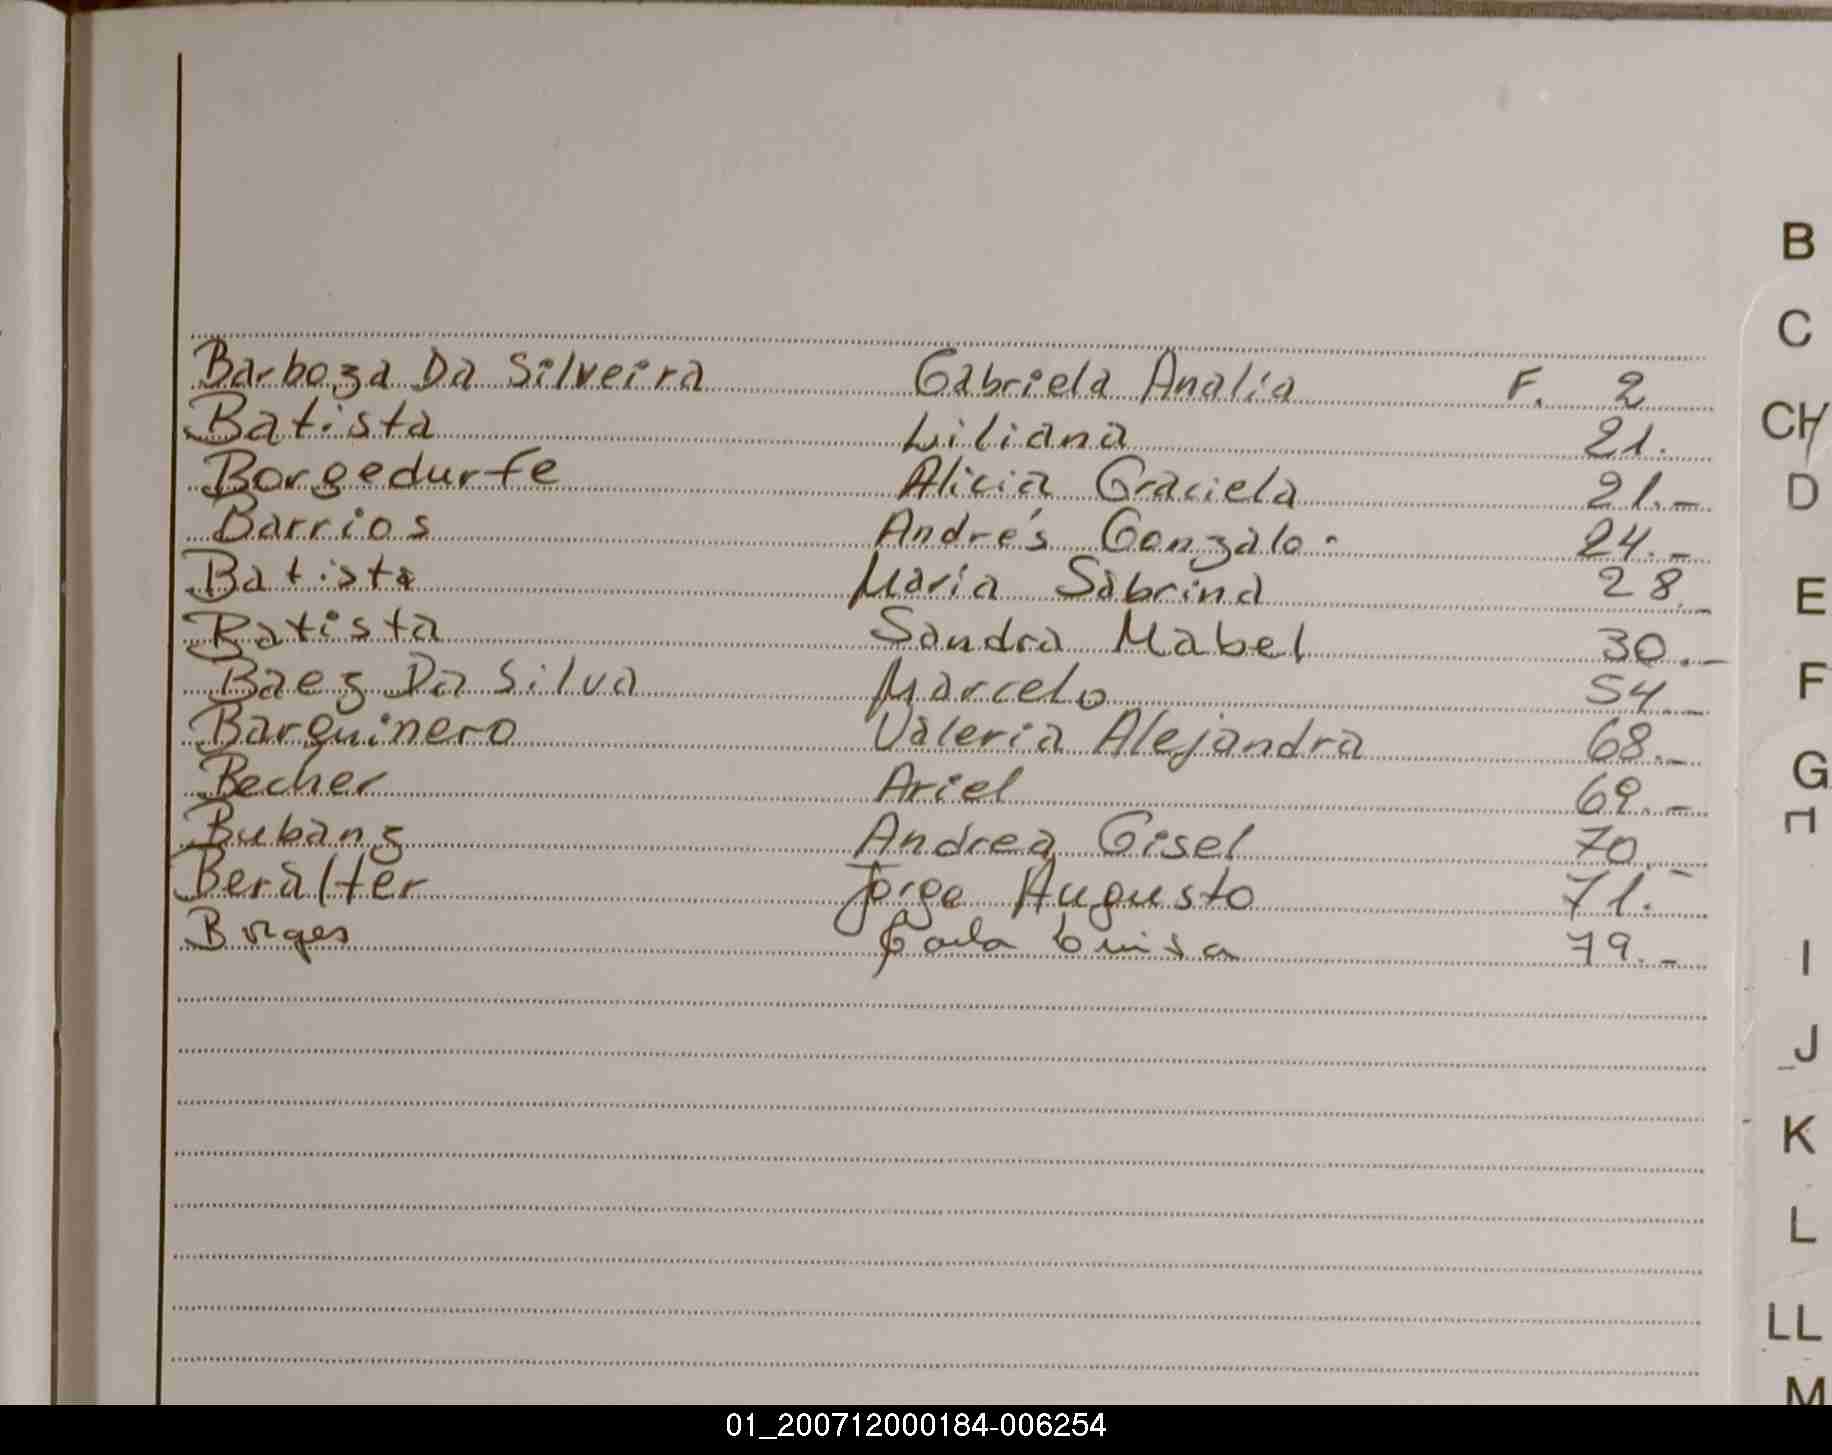 Barboza Da Silveira Gabriela Analía F. 2
Batista Liliana 21.
Borgedurfe Alicia Graciela 21.-
Barrios Andrés Gonzalo. 24.-
Batista María Sabrina 28.-
Batista Sandra Mabel 30.-
Baez Da Silva Marcelo 54.-
Barquinero Valeria Alejandra 68.-
Becher Ariel 69.-
Bubanz Andrea Gisel 70.-
Beralter Jorge Augusto 71.-
Borges Carla Luisa 79.-
B
C
CH
D
E
F
G
I
J
K
L
LL
M
01_200712000184-006254